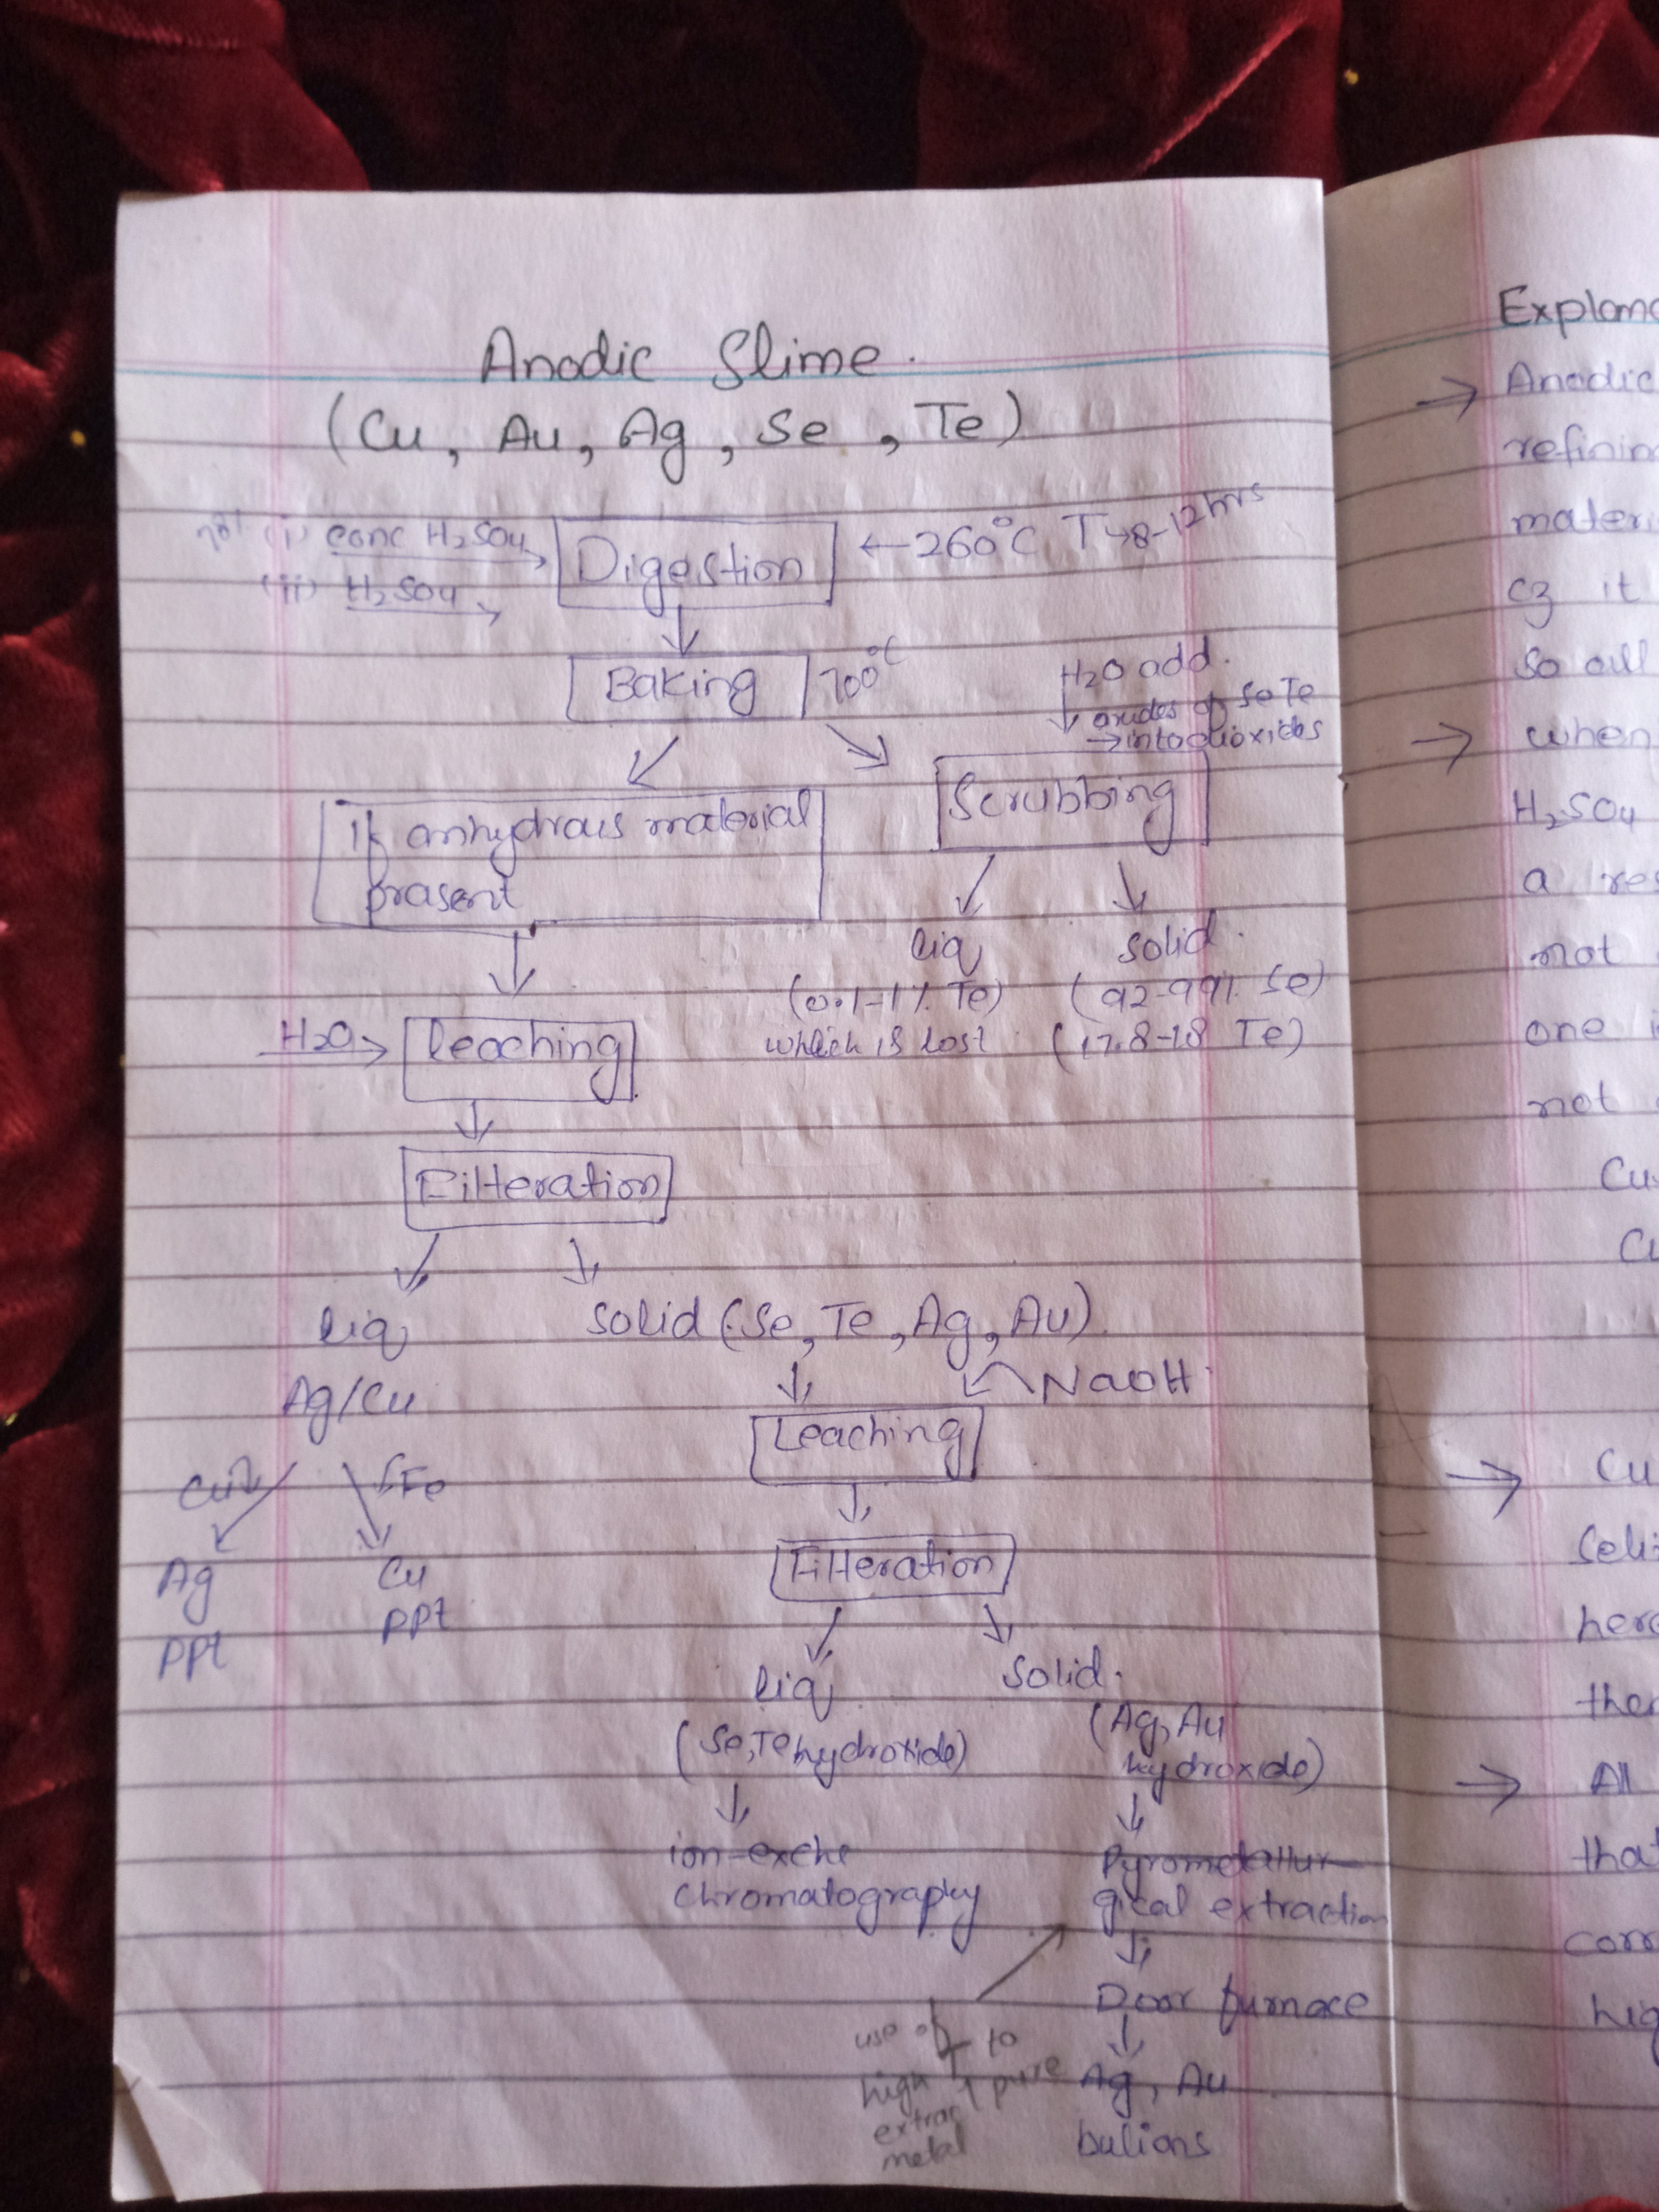 Anodic Slime.
(Cu, Au, Ag, Se, Te)
(i) conc H₂SO₄
(ii) H₂SO₄
Digestion
←260°C T→8-12hrs
Baking
700°C
H₂O add.
oxides of Se Te
→into dioxides
If anhydrous material
prasent
Scrubbing
liq
(0.1-1% Te)
which is lost
solid.
(92-99% Se)
(17.8-18 Te)
H₂O
leaching
Filteration
liq
Ag/Cu
Cu
Fe
Ag
ppt
Cu
ppt
solid (Se, Te, Ag, Au)
NaOH
Leaching
Filteration
liq
(Se, Te hydroxide)
solid.
(Ag, Au
hydroxide)
ion-exche
Chromatography
Pyrometallur-
gical extraction
Door furnace
Ag, Au
bulions
use of
high T to
extract pure
metal
Explana
→ Anodic
refinin
materi
cz it
so all
→ when
H₂SO₄
a res
not
one i
not
Cu
Cu
→ Cu
Seli
here
then
→ All
that
corr
hig